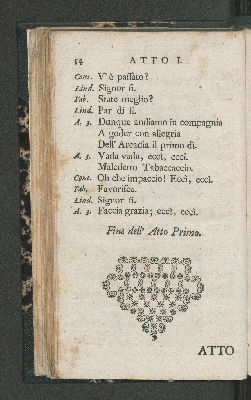 54 ATTO I.
Cont. V'è passato?
Lind. Signor sì.
Fab. State meglio?
Lind. Par di sì.
A. 3. Dunque andiamo in compagnia
A goder con allegria
Dell' Arcadia il primo dì.
A. 3. Vada vada, eccì, eccì.
Maledetto Tabaccaccio.
Cont. Oh che impaccio! Eccì, eccì.
Fab. Favorisca.
Lind. Signor sì.
A. 3. Faccia grazia; eccì, eccì.
Fine dell' Atto Primo.
ATTO